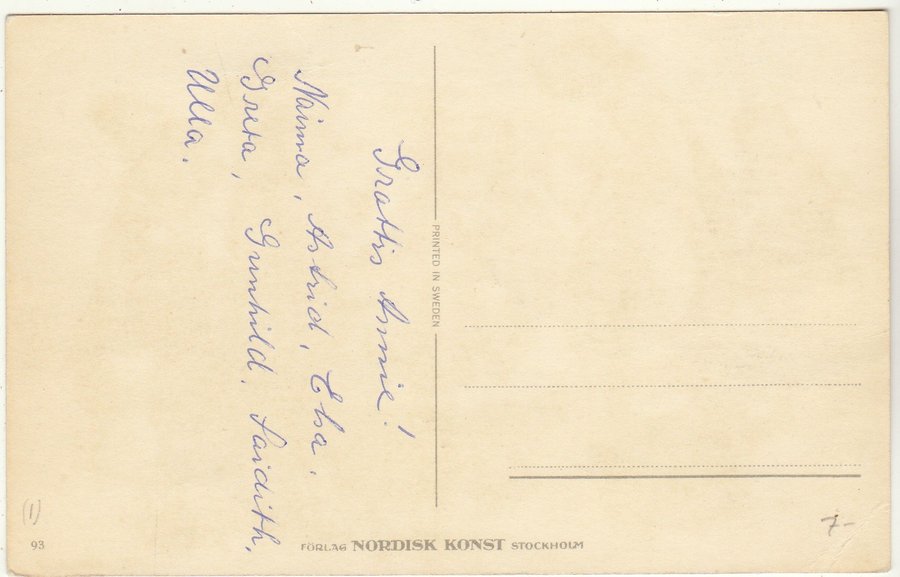 Grattis Annie!
Naima, Astrid, Elsa.
Greta, Gunhild. Saidith,
Ulla.
PRINTED IN SWEDEN
(1)
93
FÖRLAG NORDISK KONST STOCKHOLM
7-